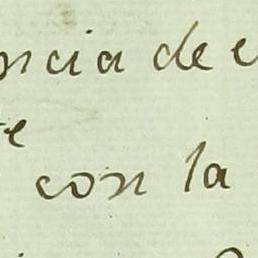 ncia de e
te
con la